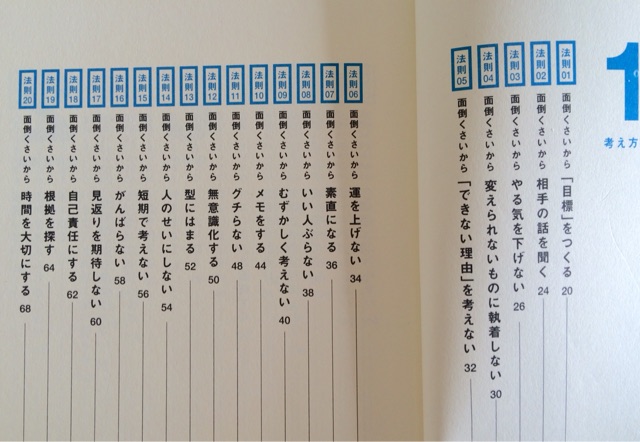 1
考え方
法則01 面倒くさいから 「目標」をつくる 20
法則02 面倒くさいから 相手の話を聞く 24
法則03 面倒くさいから やる気を下げない 26
法則04 面倒くさいから 変えられないものに執着しない 30
法則05 面倒くさいから 「できない理由」を考えない 32
法則06 面倒くさいから 運を上げない 34
法則07 面倒くさいから 素直になる 36
法則08 面倒くさいから いい人ぶらない 38
法則09 面倒くさいから むずかしく考えない 40
法則10 面倒くさいから メモをする 44
法則11 面倒くさいから グチらない 48
法則12 面倒くさいから 無意識化する 50
法則13 面倒くさいから 型にはまる 52
法則14 面倒くさいから 人のせいにしない 54
法則15 面倒くさいから 短期で考えない 56
法則16 面倒くさいから がんばらない 58
法則17 面倒くさいから 見返りを期待しない 60
法則18 面倒くさいから 自己責任にする 62
法則19 面倒くさいから 根拠を探す 64
法則20 面倒くさいから 時間を大切にする 68